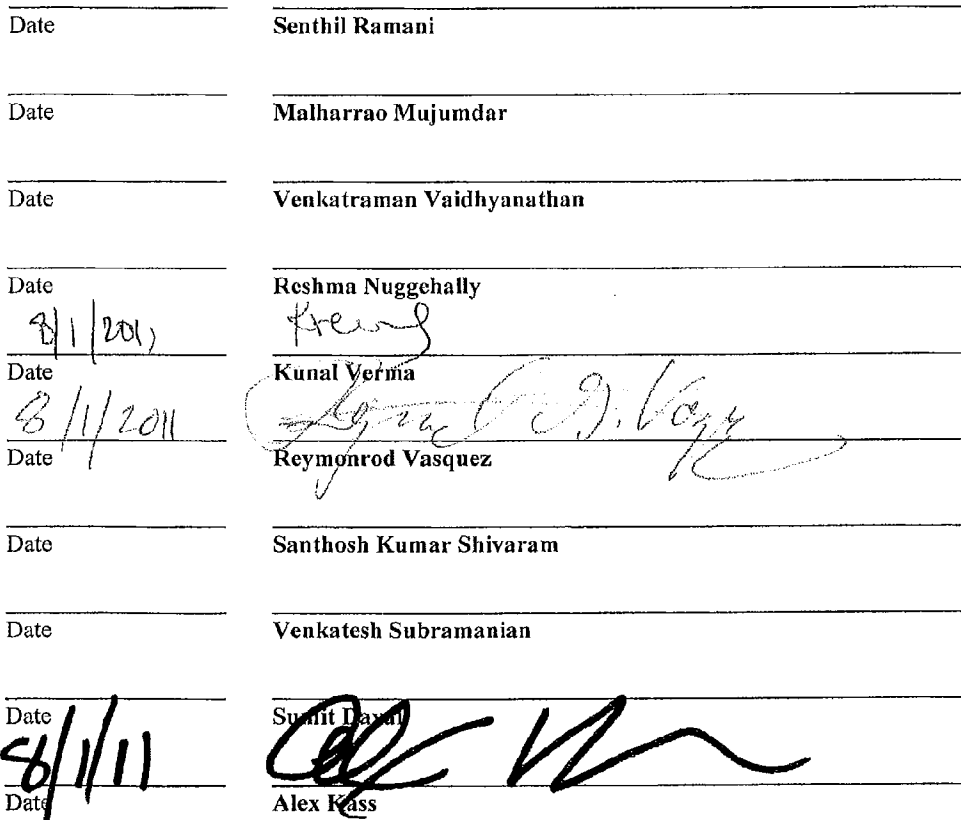 Date Senthil Ramani
Date Malharrao Mujumdar
Date Venkatraman Vaidhyanathan
Date Reshma Nuggehally
8/1/2011
Date Kunal Verma
8/1/2011
Date Reymonrod Vasquez
Date Santhosh Kumar Shivaram
Date Venkatesh Subramanian
Date Sumit Dayal
8/1/11
Date Alex Kass